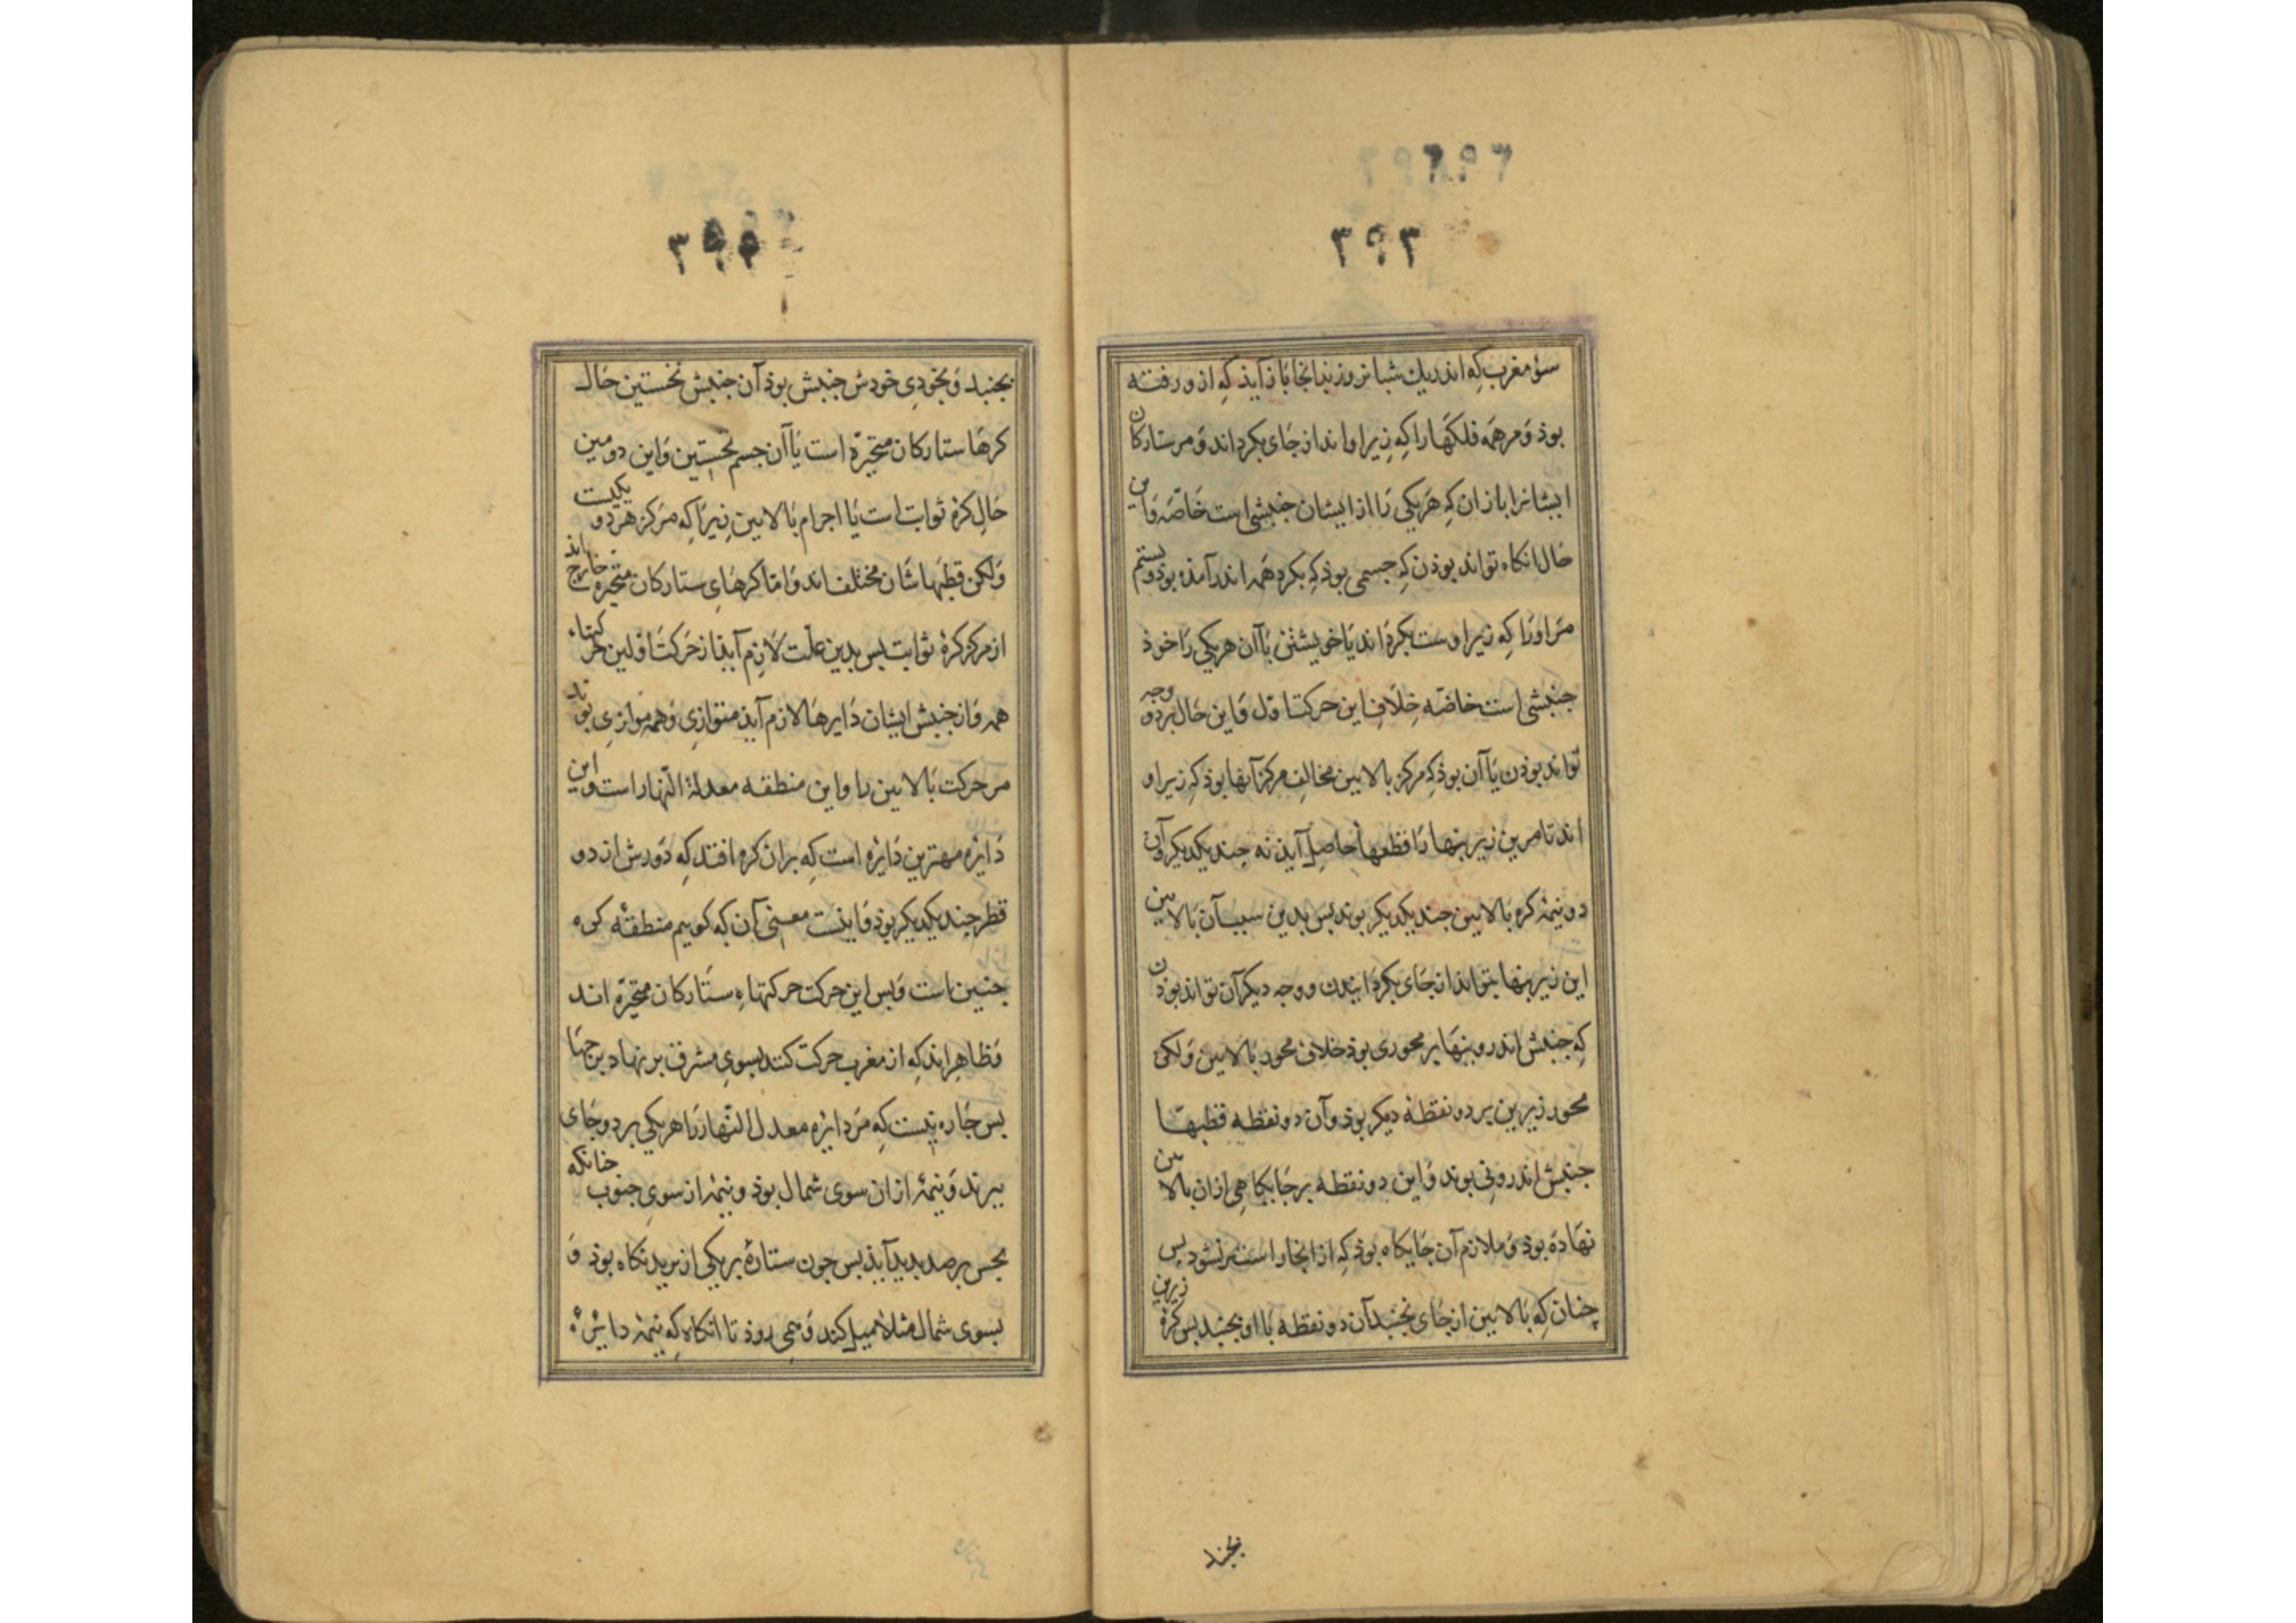 ۳۹۳
سؤ مغرب که اندر یك شبانروز بدانجا باز آیذ که ازو رفته
بوذ و مر همه فلکها را که زیر او اند از جای بکرداند و مر ستارکان
ایشانرا باز ان که هر یکی را از ایشان جنبشی است خاصّه و این
حال انکاه تواند بوذن که جسمی بوذ که بکرد همه اندر آمذه بوذ و بستم
مر او را که زیر اوست بکرداند یا خویشتن با آن هر یکی را خوذ
جنبشی است خاصّه خلاف این حرکت اول و این حال بر دو وجه
تواند بوذن یا آن بوذ که مرکز بالایین مخالف مرکز آنها بوذ که زیر او
اند تا مرین زیرینها را قطعها حاصل آیذ نه چند یکدیکر و آن
دو نیمهٔ کره بالایین چند یکدیکر بوند بس بدین سبب آن بالایین
این زیرینها بتواند از جای بکردانیدن و وجه دیکر آن تواند بوذن
که جنبش اندرونیها بر محوری بوذ خلاف محور بالایین ولکن
محور زیرین بر دو نقطهٔ دیکر بوذ و آن دو نقطه قطبها
جنبش اندرونی بوند و این دو نقطه بر جایکاهی از ان بالایین
نهاده بوذ و ملازم آن جایکاه بوذ که از انجا راستر نشود بس
چنان که بالایین از جای بجنبد آن دو نقطه با او بجنبد بس کرهٔ زیرین
بجنبد
بجنبد و بخودی خودش جنبش بوذ آن جنبش نخستین حال
کرها ستارکان متحیّره است یا آن جسم نخستین و این دومین
حال کرهٔ ثوابت است یا اجرام بالایین زیرا که مرکز هر دو یکیست
ولکن قطبهاشان مختلف اند و امّا کرهای ستارکان متحیّره خارج اند
از مرکز کرهٔ ثوابت بس بدین علّت لازم آیذ از حرکت اوّلین حرکتها
همه و از جنبش ایشان دایرها لازم آیذ متوازی و همه موازی بوند
مر حرکت بالایین را و این منطقه معدلة النّهار است و این
دایره مهترین دایره است که بران کره افتد که دورش از دو
قطر چند یکدیکر بوذ و اینست معنی آن که کوییم منطقهٔ کره
چنین است و بس این حرکت حرکتهاء ستارکان متحیّره اند
و ظاهر اند که از مغرب حرکت کنند بسوی مشرق بر نهاد برجها
بس چاره نیست که مر دایره معدل النّهار را هر یکی بر دو جای
ببرند و نیمهٔ از ان سوی شمال بوذ و نیمهٔ از سوی جنوب چنانکه
بحس برصد بدید آیذ بس چون ستارهٔ بر یکی از برید نکاه بوذ و
بسوی شمال مثلا میل کند و همی روذ تا انکاه که نیمهٔ دایرهٔ